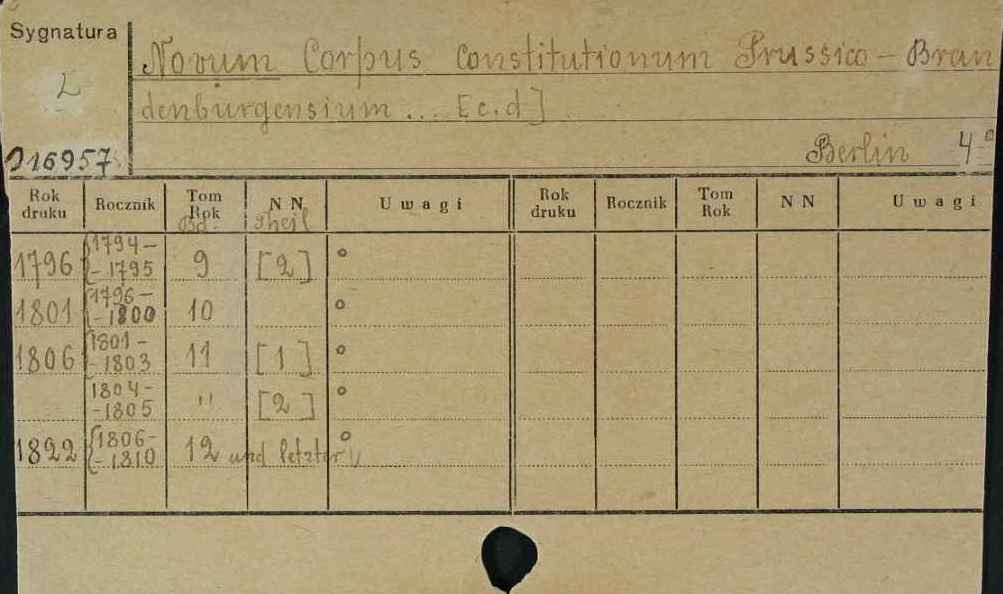 Sygnatura
Novum Corpus Constitutionum Prussico - Bran
denburgensium ... [c.d]
Berlin 4°
016957
Rok druku Rocznik Tom Rok N N Uwagi Rok druku Rocznik Tom Rok N N Uwagi
Bd. Theil
1796 1794 - - 1795 9 [2] °
1801 1796 - - 1800 10 °
1806 1801 - - 1803 11 [1] °
1804 - - 1805 " [2] °
1822 1806 - - 1810 12 und letzter °